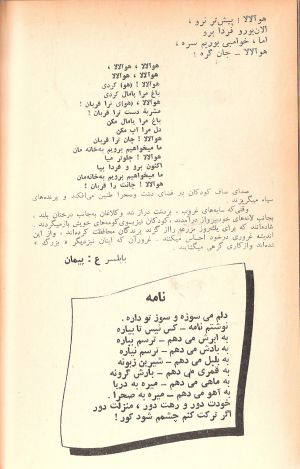 هوآلالا ! پیش‌تر نرو ،
الان‌بورو فردا برو
اما ، خوامبی بوریم سره ،
هوآلالا ـ جان گره !
هوآلالا ، هوآلالا ،
هوآلالا ، هوآلالا
هوآلالا ! (هو) کردی
باغ مرا پامال کردی
هوآلالا ، (هوای) ترا قربان !
مشربهٔ دست ترا قربان !
باغ مرا پامال مکن
دل مرا آب مکن
هوآلالا ! جان ترا قربان
ما میخواهیم برویم به‌خانه مان
هوآلالا ! جلوتر میا
اکنون برو و فردا بیا
ما میخواهیم برویم به‌خانه‌مان
هوآلالا ! جانت را قربان !
صدای صاف کودکان در فضای دشت وصحرا طنین می‌افکند و پرنده‌های
سیاه میگریزند .
وقتی‌که سایه‌های غروب ، بردشت دراز شد وکلاغان به‌جانب درختان بلند ،
بجانب لانه‌های خود پرواز درآمدند ، کودکان نیزبسوی کومه‌های خویش بازمیگردند .
شادمانند که برای یکروز مزرعه رااز گزند پرندگان محافظت کرده‌اند ، واز این
اندیشه غروری درخود احساس میکنند . غرورآن که اینان نیزدیگر « بزرگ »
شده‌اند وازکاری کرهی میگشایند .
بابلسر ع : پیمان
نامه
دلم می سوزه و سوز تو داره .
نوشتم نامه ـ کس نیس تا بیاره
به ابرش می دهم ـ ترسم بباره
به بادش می دهم ـ ترسم نیاره
به بلبل می دهم ـ شیرین زبونه
به قمری می دهم ـ بارش گرونه
به ماهی می دهم ـ میره به دریا
به آهو می دهم ـ میره به صحرا .
خودت دور و رهت دور ، منزلت دور
اگر ترکت کنم چشمم شود کور !